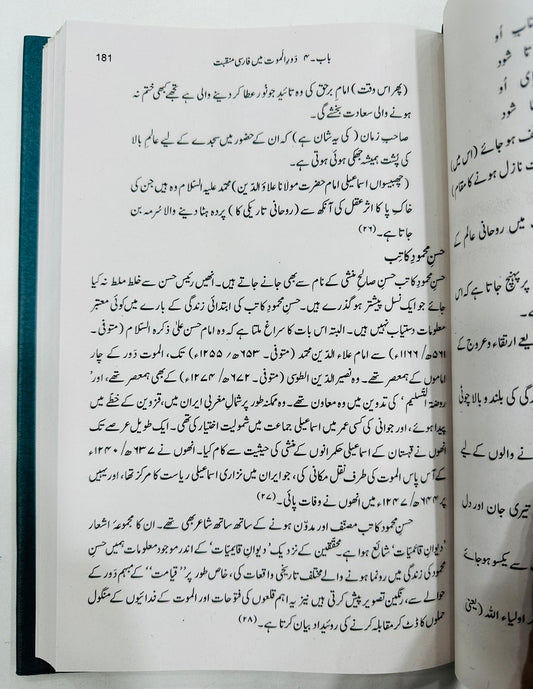 181
باب ۔ ۴ دَورِ الموت میں فارسی منقبت
(پھر اس وقت) امام برحق کی وہ تائید جو نُور عطا کر دینے والی ہے تجھے کبھی ختم نہ
ہونے والی سعادت بخشے گی۔
صاحبِ زمان (کی یہ شان ہے) کہ ان کے حضور میں سجدے کے لیے عالمِ بالا
کی پشت ہمیشہ جھکی ہوئی ہوتی ہے۔
(چھبیسواں اسماعیلی امام حضرت مولانا علاؤالدّین) محمّد علیہ السّلام وہ ہیں جن کی
خاکِ پا کا اثر عقل کی آنکھ سے (روحانی تاریکی کا) پردہ ہٹا دینے والا سُرمہ بن
جاتا ہے۔(۲۶)
حسنِ محمود کاتب
حسنِ محمود کاتب حسنِ صالح منشی کے نام سے بھی جانے جاتے ہیں۔ انھیں رئیس حسن سے خلط ملط نہ کیا
جائے جو ایک نسل پیشتر ہو گذرے ہیں۔ حسنِ محمود کاتب کی ابتدائی زندگی کے بارے میں کوئی معتبر
معلومات دستیاب نہیں ہیں۔ البتہ اس بات کا سراغ ملتا ہے کہ وہ امام حسن علیٰ ذکرہ السّلام (متوفی۔
۵۶۱ھ/۱۱۶۶ء) سے امام علاء الدّین محمّد (متوفی۔ ۶۵۳ھ/۱۲۵۵ء) تک، الموت دَور کے چار
اماموں کے ہمعصر تھے۔ وہ نصیر الدّین الطوسی (متوفی۔ ۶۷۲ھ/۱۲۷۴ء) کے بھی ہمعصر تھے، اور'
روضۂ تسلیم' کی تدوین میں وہ معاون تھے۔ وہ ممکنہ طور پر شمال مغربی ایران میں، قزوین کے خطے میں
پیدا ہوئے، اور جوانی کی کسی عمر میں اسماعیلی جماعت میں شمولیت اختیار کی تھی۔ ایک طویل عرصے تک
انھوں نے قہستان کے اسماعیلی حکمرانوں کے منشی کی حیثیت سے کام کیا۔ انھوں نے ۶۳۷ھ/۱۲۴۰ء
کے آس پاس الموت کی طرف نقل مکانی کی، جو ایران میں نزاری اسماعیلی ریاست کا مرکز تھا، اور یہیں
پر ۶۴۴ھ/۱۲۴۷ء میں انھوں نے وفات پائی۔(۲۷)
حسنِ محمود کاتب مصنّف اور مدوّن ہونے کے ساتھ ساتھ شاعر بھی تھے۔ ان کا مجموعۂ اشعار
'دیوانِ قائمیّات' شائع ہوا ہے۔ محققین کے نزدیک 'دیوانِ قائمیّات' کے اندر موجود معلومات ہمیں حسنِ
محمود کی زندگی میں رونما ہونے والے مختلف تاریخی واقعات کی، خاص طور پر ''قیامت'' کے مبہم دَور کے
حوالے سے، رنگین تصویر پیش کرتی ہیں نیز یہ اہم قلعوں کی فتوحات اور الموت کے فدائیوں کے منگول
حملوں کا ڈٹ کر مقابلہ کرنے کی روئیداد بیان کرتا ہے۔(۲۸)
اُو
تا شود
اُو
شود
ف ہو جائے (اس میں)
ت نازل ہونے کا مقام)
میں روحانی عالم کے
پر پہنچ جاتا ہے کہ اس
یعے ارتقاء و عروج کے
گی کی بلند و بالا چوٹی
نے والوں کے لیے
تیری جان اور دل
سے یکسو ہو جائے
ر اولیاء اللہ (یعنی